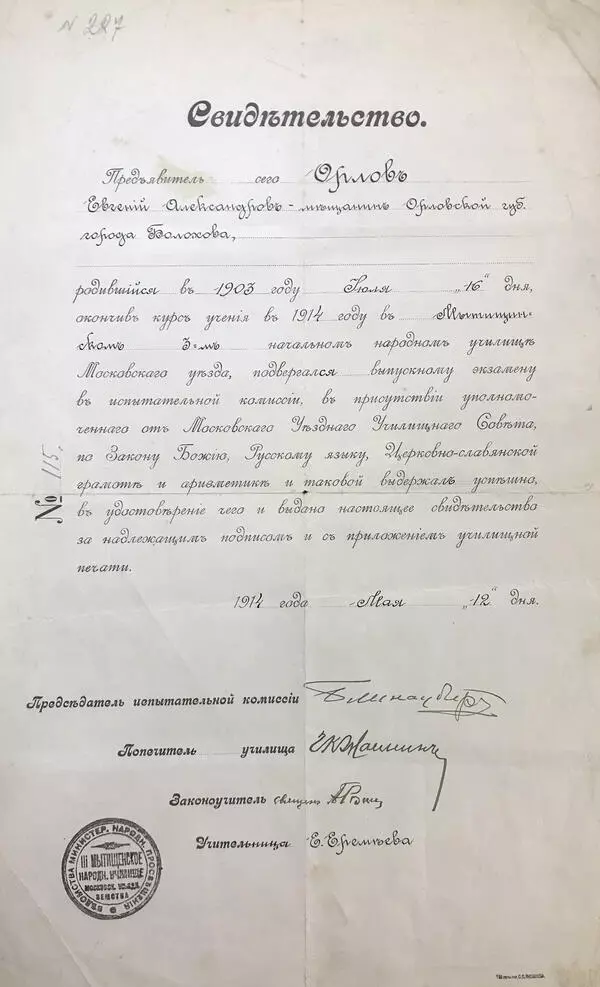 N 227
Свидѣтельство.
Предъявитель сего Орловъ
Евгеній Александровъ - мѣщанинъ Орловской губ.
города Болохова,
родившійся въ 1903 году Іюля „16" дня,
окончивъ курсъ ученія въ 1914 году въ Мытищин-
скомъ 3-мъ начальномъ народномъ училищѣ
Московскаго уѣзда, подвергался выпускному экзамену
въ испытательной комиссіи, въ присутствіи уполномо-
ченнаго отъ Московскаго Уѣзднаго Училищнаго Совѣта,
по Закону Божію, Русскому языку, Церковно-славянской
грамотѣ и ариѳметикѣ и таковой выдержалъ успѣшно,
въ удостовѣреніе чего и выдано настоящее свидѣтельство
за надлежащимъ подписомъ и съ приложеніемъ училищной
печати.
№ 115.
1914 года Мая „12" дня.
Предсѣдатель испытательной комиссіи
Попечитель училища
Законоучитель свящ
Учительница Е. Еремѣева
ВѢДОМСТВА МИНИСТЕР. НАРОДН. ПРОСВѢЩЕНІЯ
III МЫТИЩЕНСКОЕ
НАРОДН. УЧИЛИЩЕ
МОСКОВСК. УѢЗДН.
ЗЕМСТВА